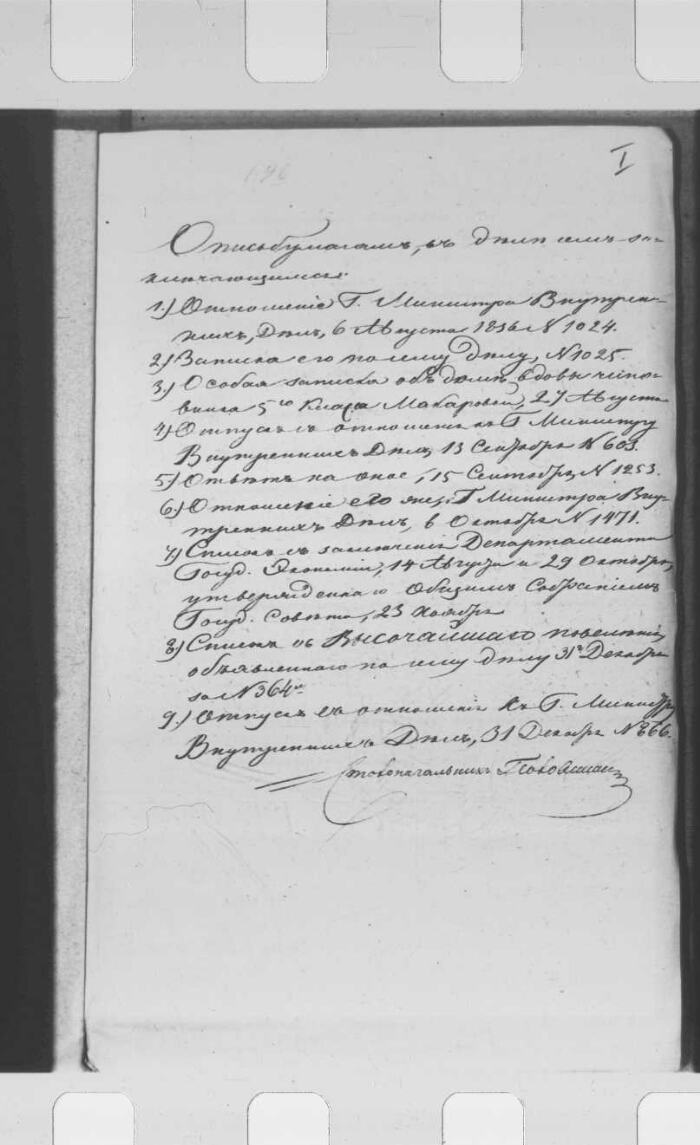 I
Опись бумагамъ, въ дѣлѣ семъ за-
ключающимся.
1.) Отношеніе Г. Министра Внутрен-
нихъ Дѣлъ, 6 Августа 1836 N 1024.
2.) Записка его по сему дѣлу, N 1025.
3.) Особая записка объ домѣ вдовы чинов-
5го Класса Макаровой, 27 Августа
4.) Отпускъ съ отношенія къ Г. Министру
Внутреннихъ Дѣлъ, 13 Сентября N 603.
5.) Отвѣтъ на оное, 15 Сентября, N 1253.
6.) Отношеніе его же, Г. Министра Вну-
треннихъ Дѣлъ, 6 Октября N 1471.
7.) Списокъ съ заключенія Департамента
Госуд. Экономіи, 14 Августа и 29 Октября,
утвержденнаго Общимъ Собраніемъ
Госуд. Совѣта, 23 Ноября
8.) Списокъ съ Высочайшаго повелѣнія,
объявленнаго по сему дѣлу 31 Декабря
за N 364
9.) Отпускъ съ отношенія къ Г. Министру
Внутреннихъ Дѣлъ, 31 Декабря N 866.
Столоначальникъ